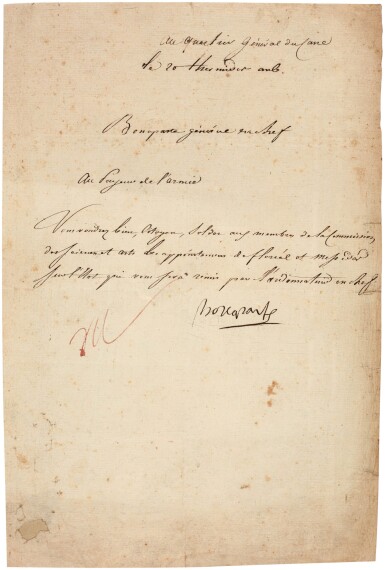 Au Quartier Général du Caire
le 20 thermidor an 6.
Bonaparte général en chef
Au Payeur de l'armée
Vous voudrez bien, Citoyen, solder aux membres de la Commission
des sciences et arts les appointemens de floréal et messidor
sur l'état qui vous sera remis par l'ordonnateur en chef
Bonaparte